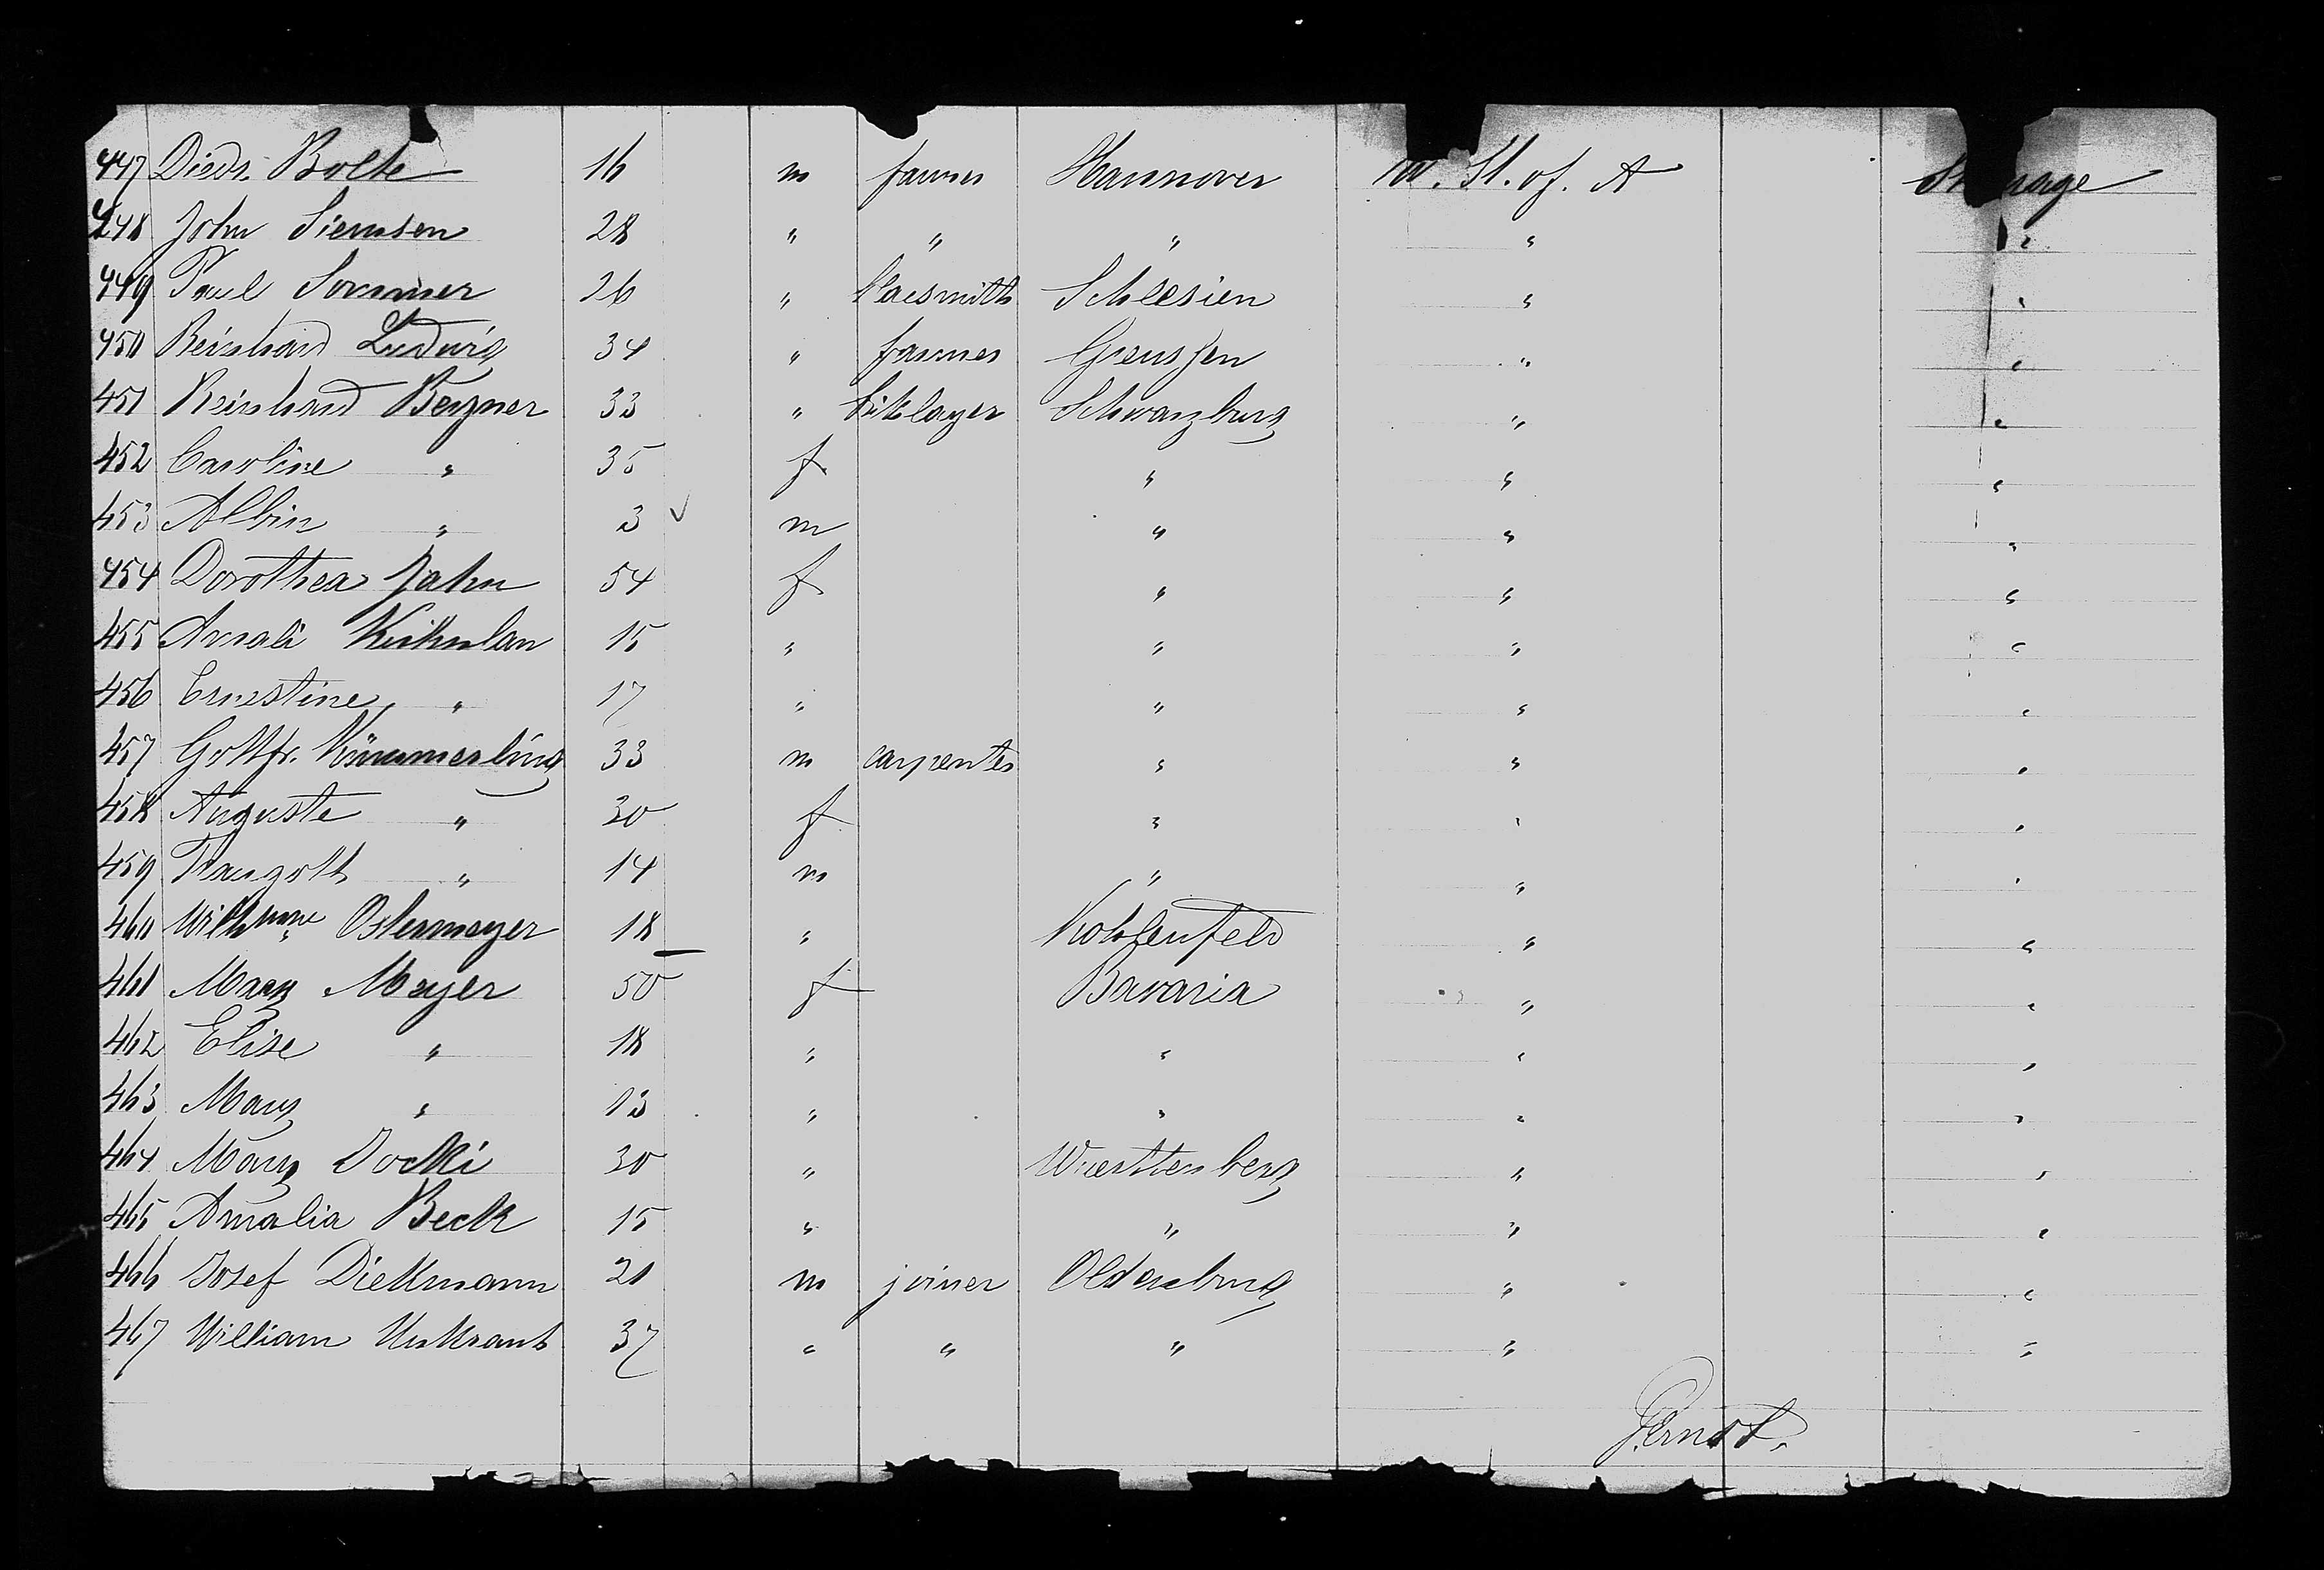 447 Diedr. Bolte 16 m farmer Hannover St. of. A
448 John Siemsen 28 " " " " "
449 Paul Sommer 26 " Schlesien " "
450 Reinhard Ludwig 34 " farmer Greussen " "
451 Reinhard Bergner 33 " Schwarzburg " "
452 Caroline " 35 f " " "
453 Albin " 3 ✓ m " " "
454 Dorothea Jahn 54 f " " "
455 Amali 15 " " " "
456 Ernestine " 17 " " " "
457 Gottfr. Kümmerling 33 m carpenter " " "
458 Auguste " 30 f " " "
459 Traugott " 14 m " " "
460 Ostermeyer 18 " Kohlenfeld " "
461 Mary Meyer 50 f Bavaria " "
462 Elise " 18 " " " "
463 Mary " 13 " " " "
464 Mary 30 " Wuerttenberg " "
465 Amalia Beck 15 " " " "
466 Josef Diekmann 21 m joiner Oldenburg " "
467 William 37 " " " " "